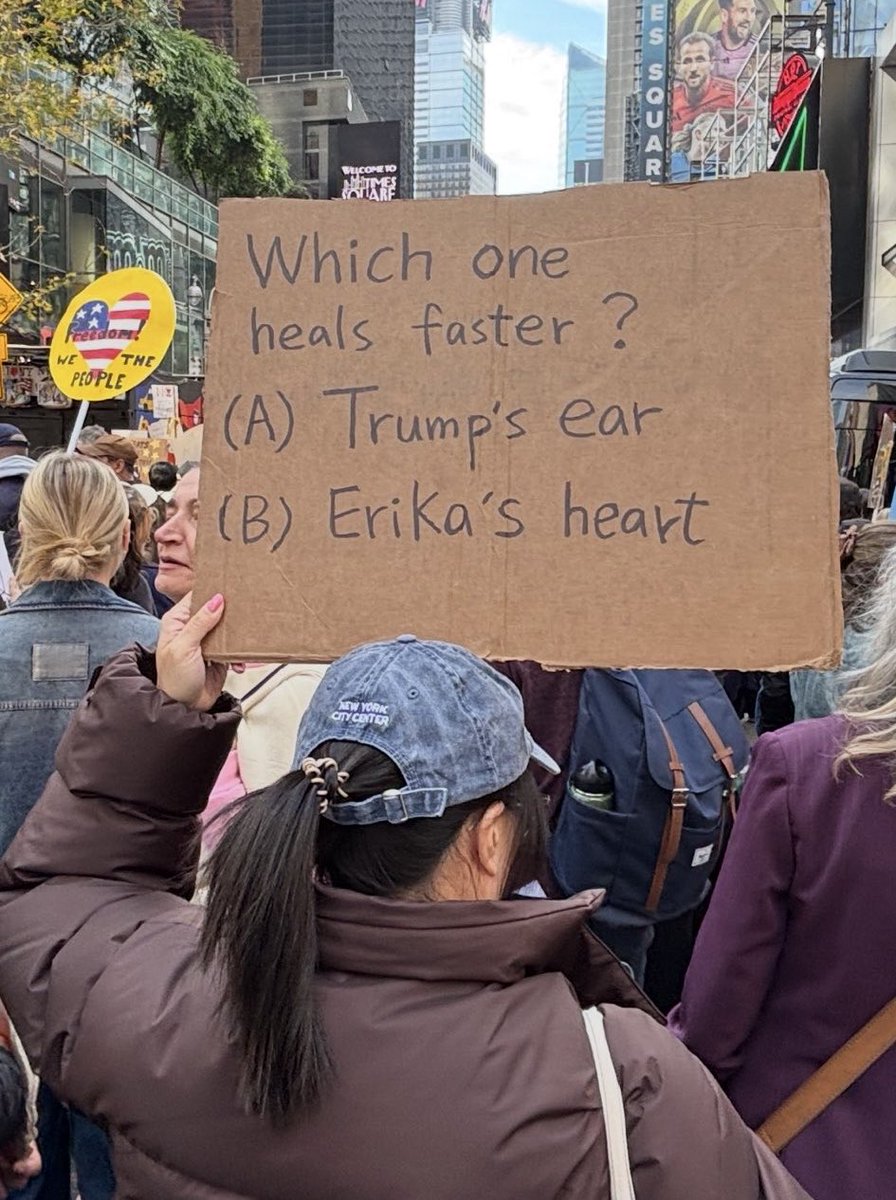 Which one
heals faster ?
(A) Trump's ear
(B) Erika's heart
Freedom!
WE THE
PEOPLE
WELCOME TO
TIMES
SQUARE
ES SQUAR
NEW YORK
CITY CENTER